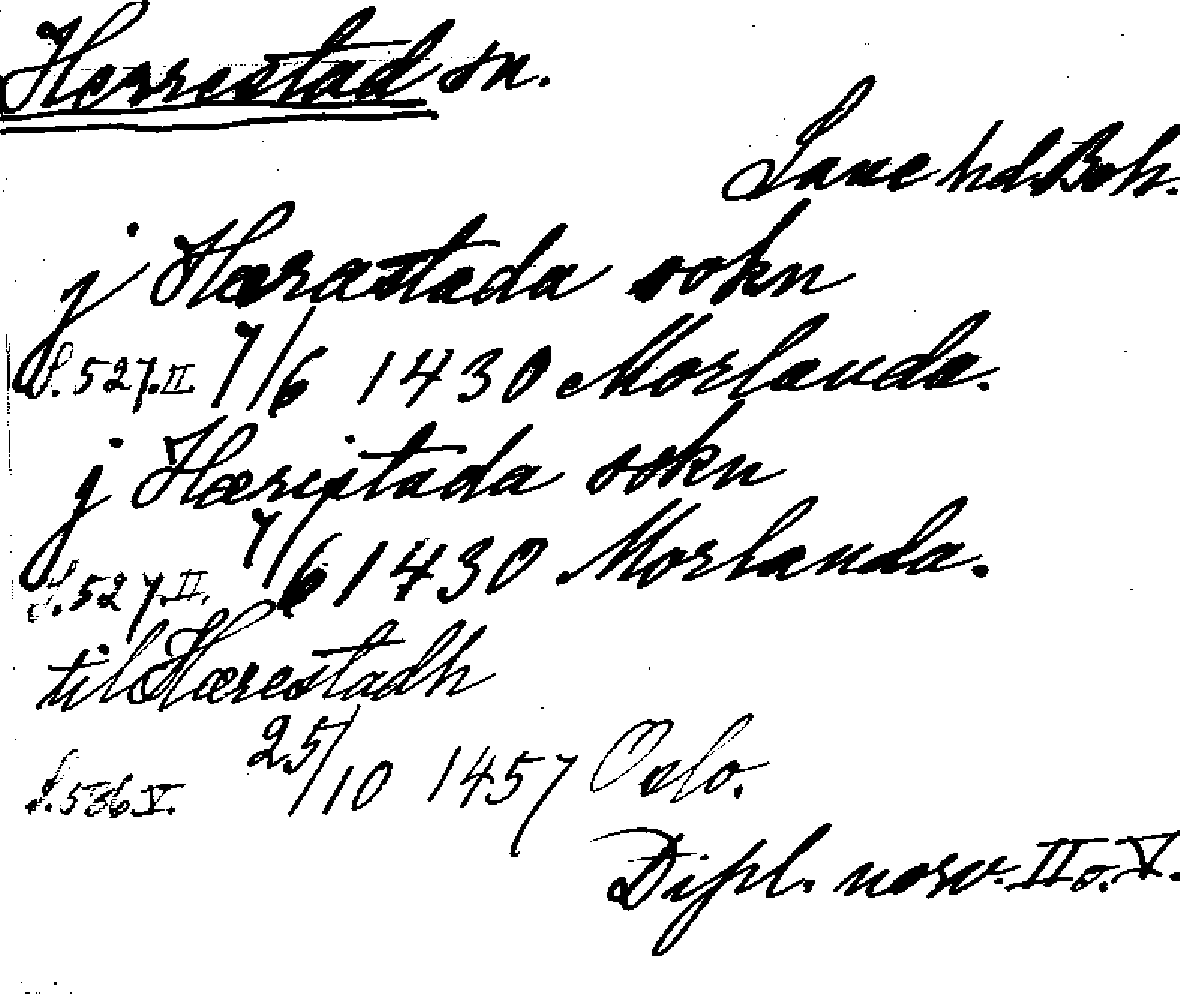 Herrestad sn.
Lane hd. Boh.
j Hærastada sokn
S. 527. II 7/6 1430 Morlanda.
j Hæristada sokn
S. 527. II. 7/6 1430 Morlanda.
til Hærestadh
S. 536 V. 25/10 1457 Oslo.
Dipl. norv. II o. V.